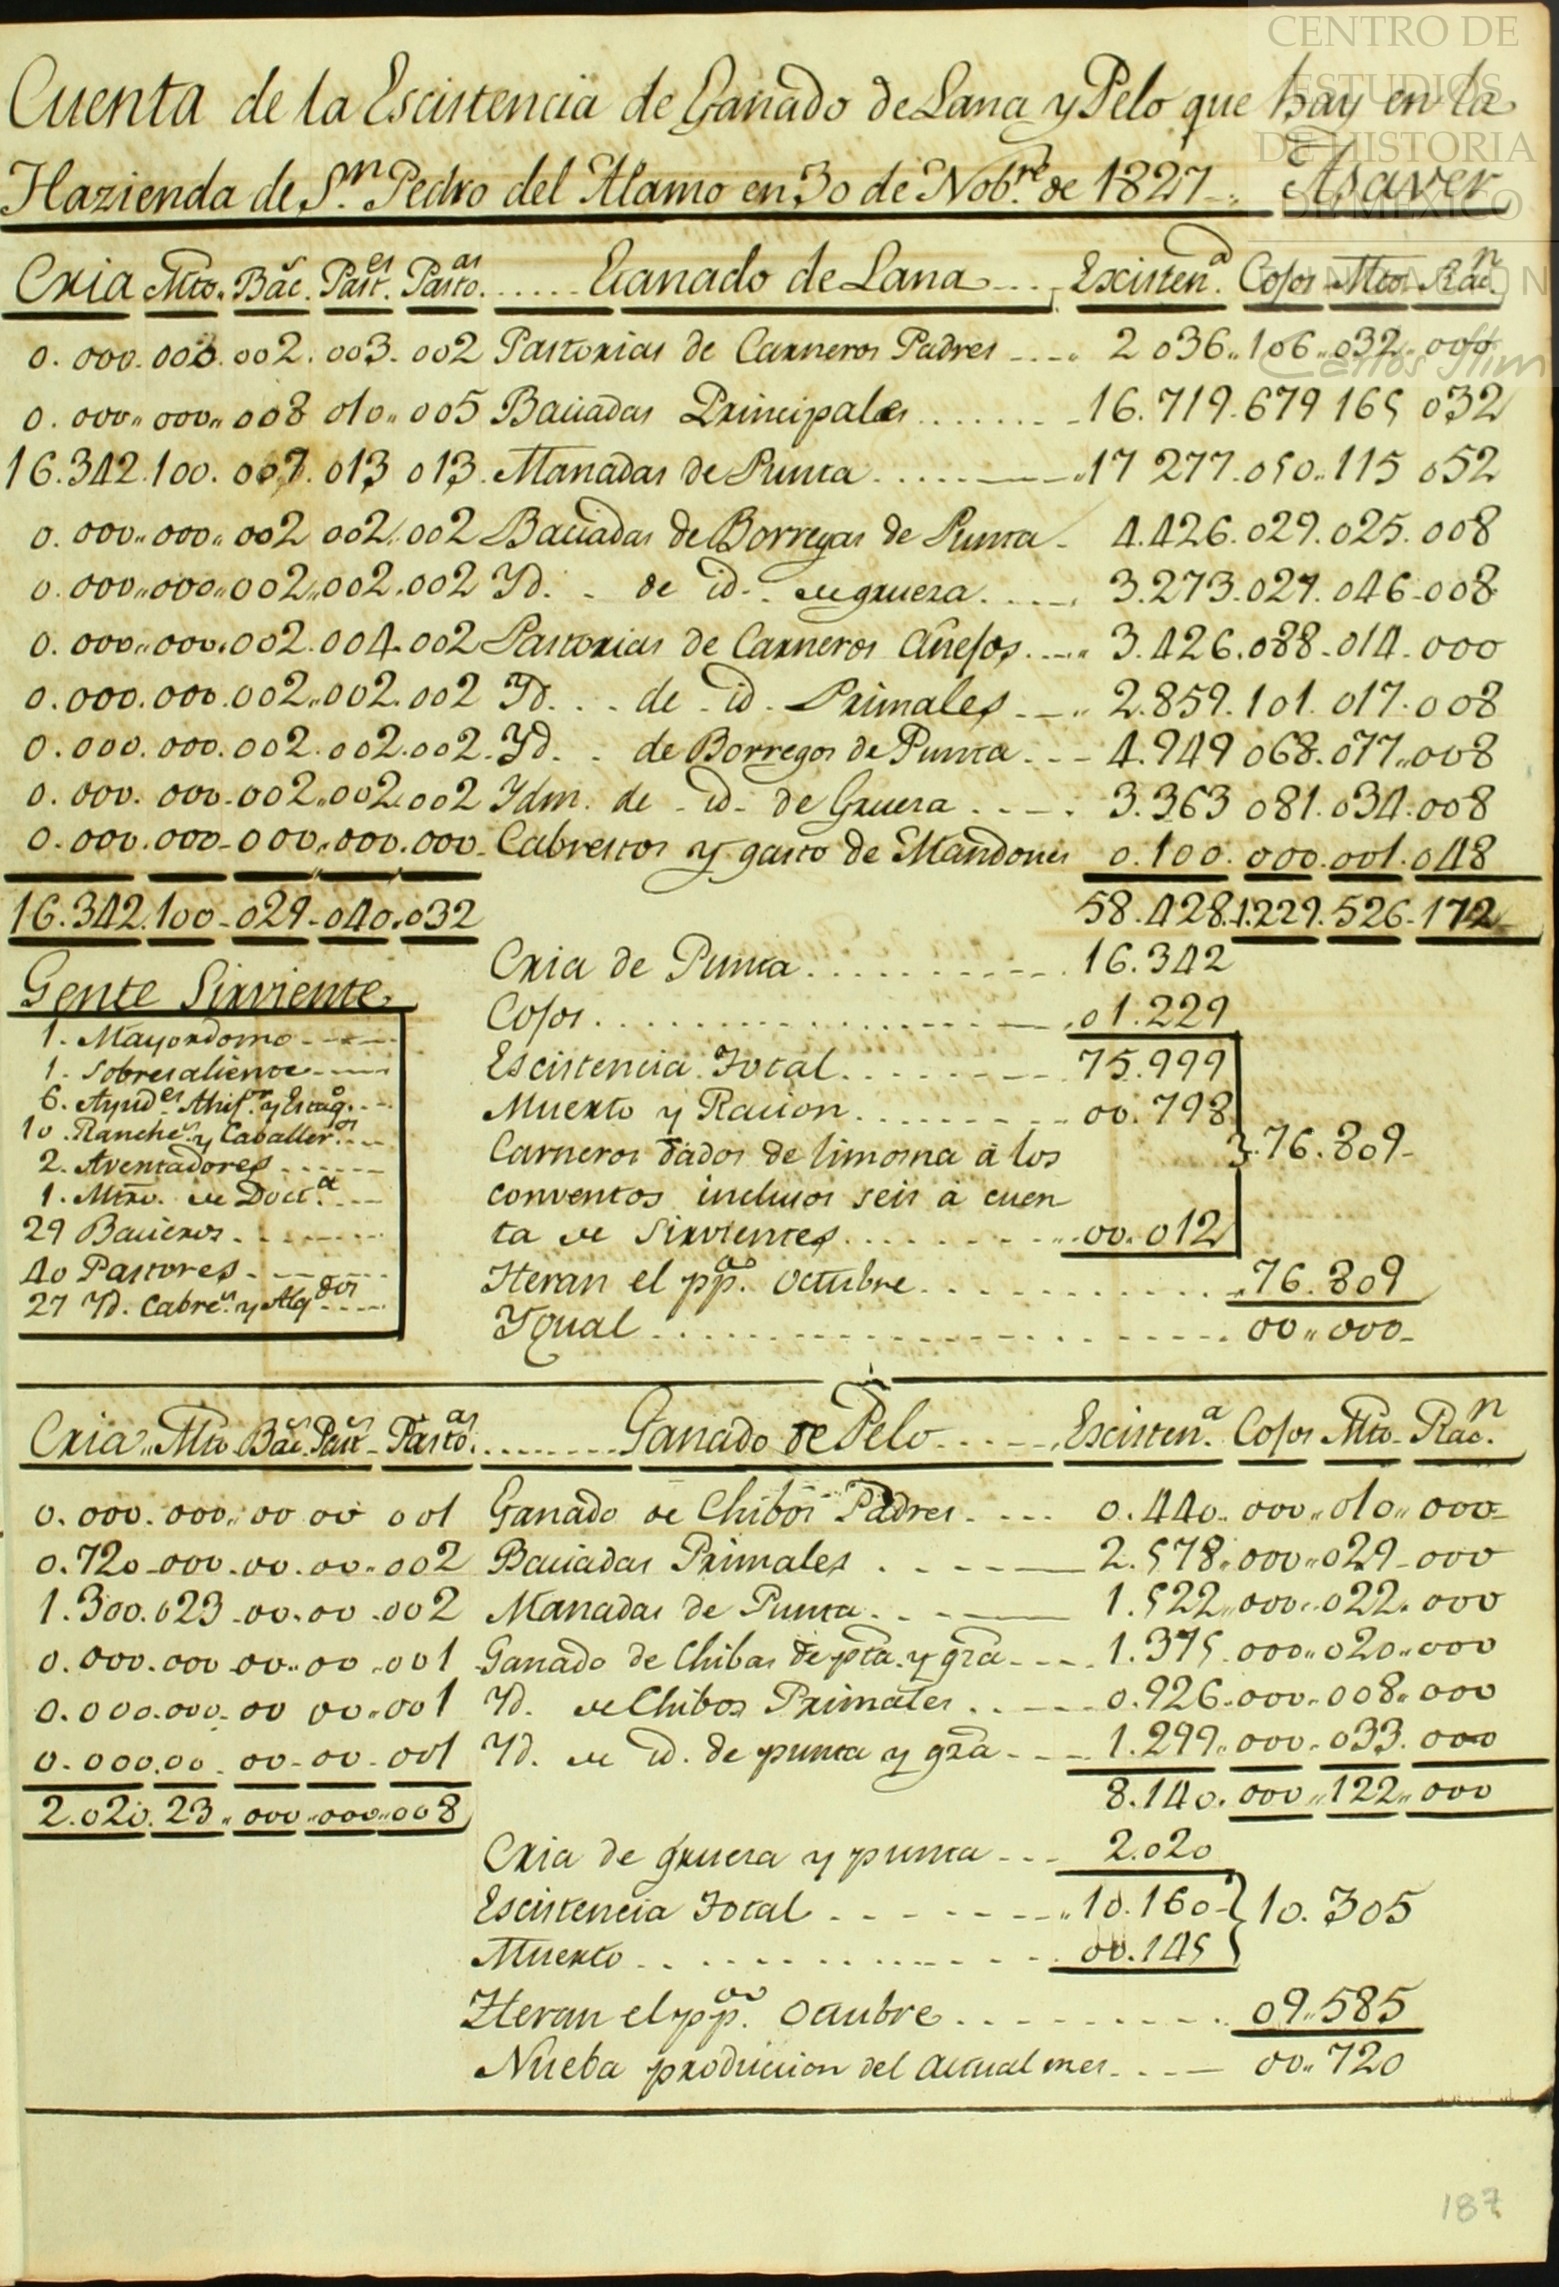 CENTRO DE
ESTUDIOS
DE HISTORIA
DE MÉXICO
FUNDACIÓN
Carlos Slim
Cuenta de la Escistencia de Ganado de Lana y Pelo que hay en la
Hazienda de Sn. Pedro del Alamo en 30 de Nobre. de 1827. Asaver
Cria Mto. Bac.s Past.es Pasto.as ..... Ganado de Lana .... Existen.a Cojos Mto. Rac.n
0. 000. 000. 002. 003. 002 Pastorias de Carneros Padres .... 2 036.. 106.. 032.. 000
0. 000.. 000.. 008 010.. 005 Baciadas Principales ....... 16. 719. 679 165 032
16.342. 100. 007. 013 013. Manadas de Punta ........ 17 277. 050.. 115 052
0. 000.. 000.. 002 002. 002 Baciadas de Borregas de Punta - 4.426. 029. 025. 008
0. 000.. 000.. 002.. 002. 002 Yd. - de id. de gruesa ..... 3.273. 027. 046. 008
0. 000.. 000. 002. 004. 002 Pastorias de Carneros añejos .... 3.426. 088. 014. 000
0. 000. 000. 002.. 002. 002 Yd. . . de id. Primales .... 2.859. 101. 017. 008
0. 000. 000. 002. 002. 002. Yd. . . de Borregos de Punta ... 4.949 068. 077.. 008
0. 000. 000. 002.. 002. 002 Ydm. de id. de Gruesa .... 3.363 081. 034. 008
0. 000. 000. 000.. 000. 000. Cabrestos y gasto de Mandones 0. 100. 000. 001. 048
16.342. 100. 029. 040. 032 58.428. 1.229. 526. 172
Cria de Punta ............ 16.342
Cojos ................. 01.229
Escistencia Total ........ 75.999
Muerto y Racion ........ 00.798
Carneros dados de limosna á los 76.809
conventos inclusos seis á cuen
ta de Sirvientes ......... 00.012
Heran el pp.do Octubre ............ 76.809
Ygual ...................... 00.. 000
Gente Sirviente
1. Mayordomo
1. Sobresaliente
6. Ayud.es Ahij.os y Escog.o
10. Ranche.s y Caballer.os
2. Aventadores
1. Mtro. de Doct.a
29 Bacieros
40 Pastores
27 Yd. Cabre.s y Alq.dos
Cria.. Mto Bac.s Past.s Pasto.as ....... Ganado de Pelo ..... Escisten.a Cojos Mto. Rac.n
0. 000. 000.. 00 00 001 Ganado de Chibos Padres .... 0. 440. 000.. 010.. 000
0.720. 000. 00. 00. 002 Baciadas Primales ..... 2.578. 000.. 029. 000
1.300. 023. 00. 00. 002 Manadas de Punta ..... 1.522.. 000.. 022. 000
0. 000. 000 00.. 00.. 001 Ganado de Chibas de pta. y gra .... 1.375. 000.. 020.. 000
0. 000. 000. 00 00.. 001 Yd. de Chibos Primales ..... 0.926. 000. 008. 000
0. 000. 00. 00. 00. 001 Yd. de id. de punta y gra .... 1.299. 000. 033. 000
2.020. 23. 000. 000. 008 8.140. 000.. 122.. 000
Cria de gruesa y punta ... 2.020
Escistencia Total ....... 10.160 10.305
Muerto ............. 00.145
Heran el pp.do Octubre ......... 09.585
Nueba produccion del actual mes .... 00.. 720
187